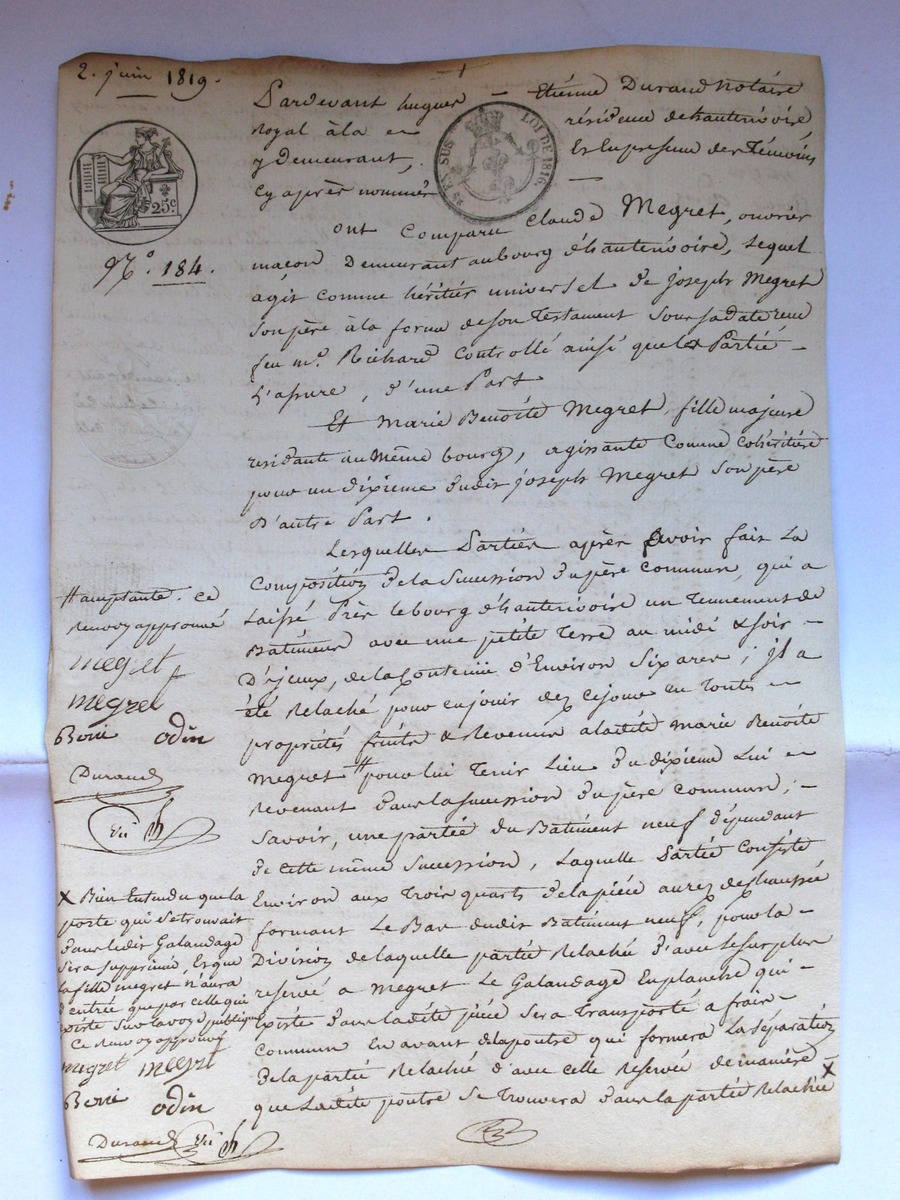 2. juin 1819.
Pardevant hugues — Etienne Durand Notaire
royal à la résidence de hauterivoire
y demeurant, Et En presence des Témoins
Cy après nommés
EN SUS LOI DE 1816.
25c
No. 184.
ont Comparu Claude Megret, ouvrier
maçon Demeurant au bourg d'hauterivoire, Lequel
agit comme héritier universel de joseph Megret
son père à la forme de son Testament Sous sa date reçu
feu me. Richard Controllé ainsi que la Partie
L'assure, d'une Part.
Et marie Benoîte Megret fille majeure
residante au même bourg, agissante Comme Cohéritière
pour un dixieme dudit joseph Megret Son père
D'autre Part.
Lesquelles Parties après avoir fait La
Composition de la Succession du père Commun, qui a
Laissé Près le bourg d'hauterivoire un Tennement de
Bâtimens avec une petite Terre au midi & soir
D'iceux, de la Contenue d'Environ Six ares; il a
été Relaché pour en jouir dez ce jour en Toutes
propriétés fruits & Revenus a ladite marie Benoîte
Megret # pour lui Tenir Lieu du dixieme Lui
Revenant dans la Succession du père Commun;
Savoir, une partie du Bâtiment neuf dépendant
de cette même Succession, Laquelle Partie Consiste
Environ aux Trois quarts de la pièce au rez de chaussée
formant Le Bas dudit Bâtiment neuf, pour la
Division de laquelle partie Relaché d'avec le Surplus
reservé a Megret Le Galandage En planche qui
Existe dans ladite pièce Sera Transporté a frais
Commun En avant de la poutre qui formera La Séparation
de la partie Relachée d'avec celle Reservée de manière
que Ladite poutre Se Trouvera dans la partie Relachée X
# acceptante. Ce
Renvoy approuvé
megret
megret
Berie odin
Durand
X Bien Entendu que la
porte qui Se trouvait
dans ledit Galandage
Sera Supprimée, Et que
la fille megret n'aura
d'entrée que par celle qui
Existe Sur la voye publique
Ce Renvoy approuvé
megret megret
Berie odin
Durand